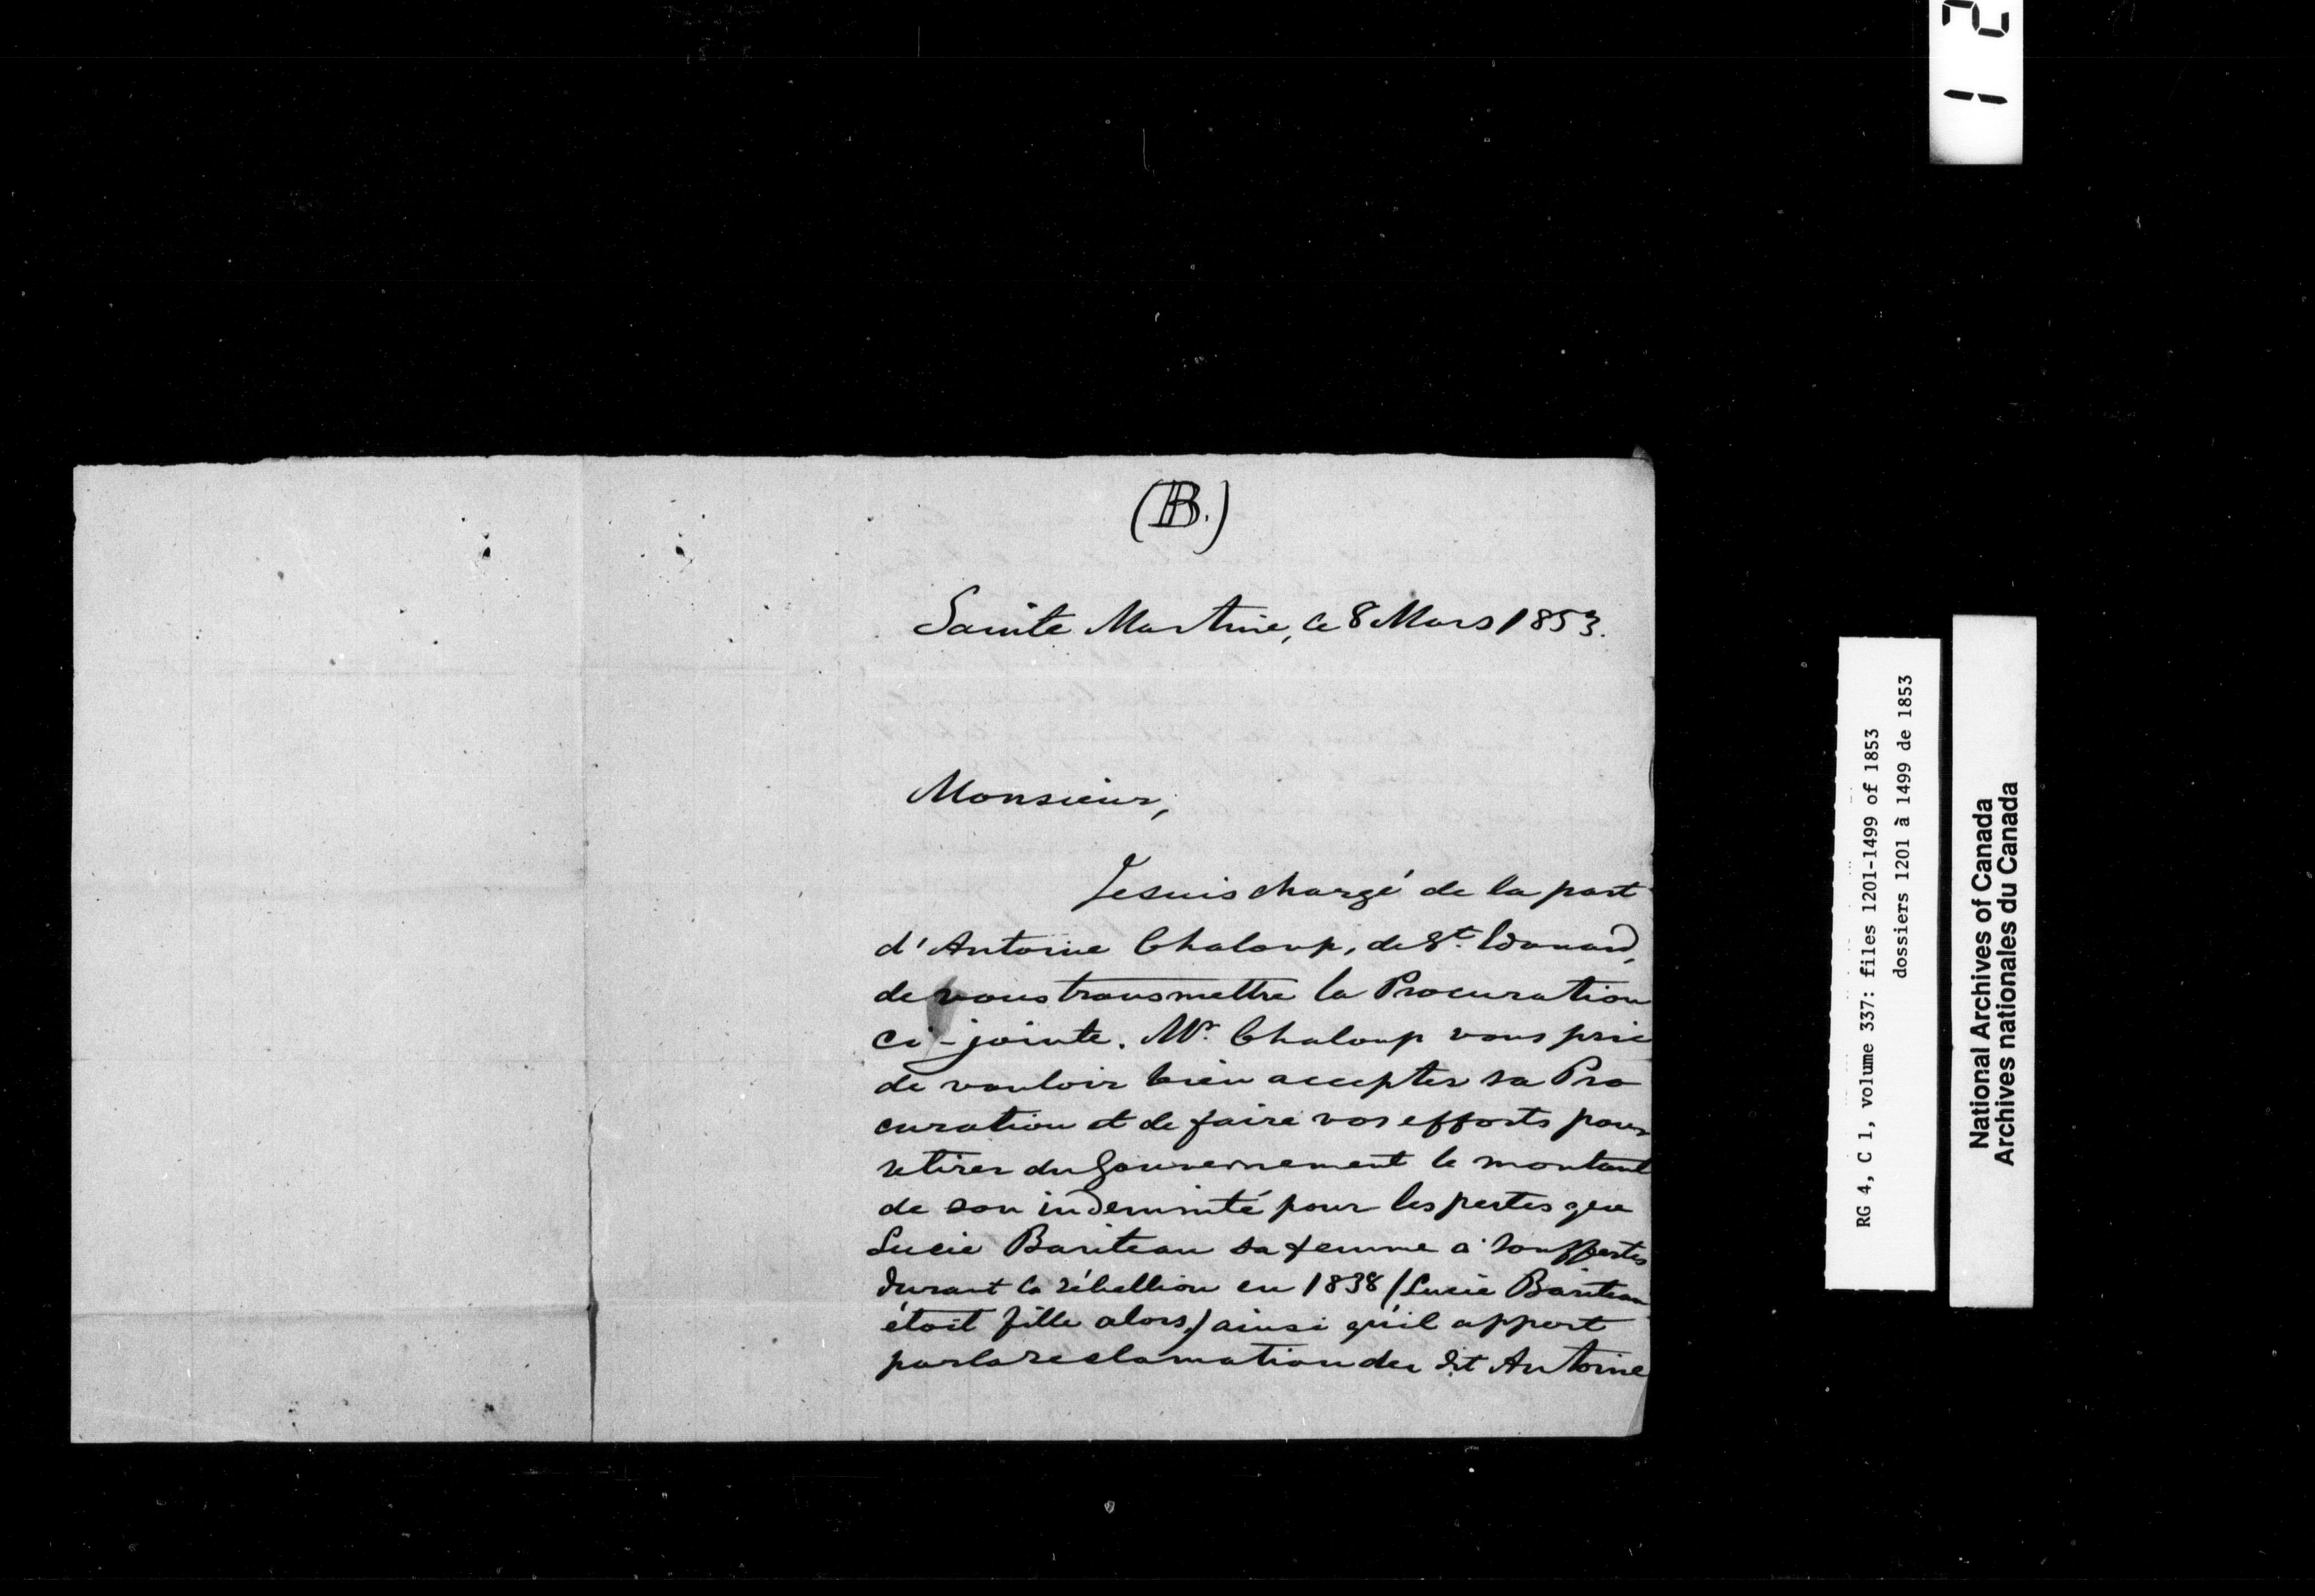 (B.)
Sainte Martine, le 8 Mars 1853.
Monsieur,
Je suis chargé de la part
d'Antoine Chaloup, de St. Edouard,
de vous transmettre la Procuration
ci-jointe. Mr. Chaloup vous prie
de vouloir bien accepter sa Pro
curation et de faire vos efforts pour
retirer du Gouvernement le montant
de son indemnité pour les pertes que
Lucie Bariteau sa femme a souffertes
durant la rébellion en 1838 (Lucie Bariteau
étoit fille alors,) ainsi qu'il appert
par la reclamation du dit Antoine
RG 4, C 1, volume 337: files 1201-1499 of 1853
dossiers 1201 à 1499 de 1853
National Archives of Canada
Archives nationales du Canada
1 2